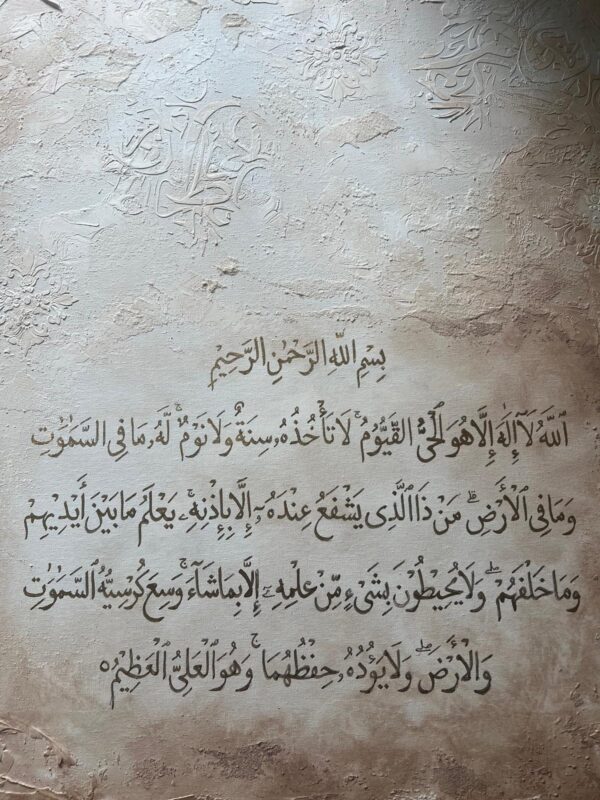 بِسْمِ اللّٰهِ الرَّحْمٰنِ الرَّحِيْمِ
ٱللَّهُ لَآ إِلَٰهَ إِلَّا هُوَ ٱلْحَىُّ القَيُّوْمُ ۚ لَا تَأْخُذُهُۥ سِنَةٌ وَلَا نَوْمٌ ۚ لَّهُۥ مَا فِى السَّمَٰوَٰتِ
وَمَا فِى ٱلْأَرْضِ ۗ مَنْ ذَا الَّذِى يَشْفَعُ عِنْدَهُۥٓ إِلَّا بِإِذْنِهِۦ ۚ يَعْلَمُ مَا بَيْنَ أَيْدِيهِمْ
وَمَا خَلْفَهُمْ ۖ وَلَا يُحِيْطُوْنَ بِشَىْءٍ مِّنْ عِلْمِهِۦٓ إِلَّا بِمَا شَآءَ ۚ وَسِعَ كُرْسِيُّهُ ٱلسَّمَٰوَٰتِ
وَالْأَرْضَ ۖ وَلَا يَؤُدُهُۥ حِفْظُهُمَا ۚ وَهُوَ ٱلْعَلِىُّ ٱلْعَظِيْمُ ۝